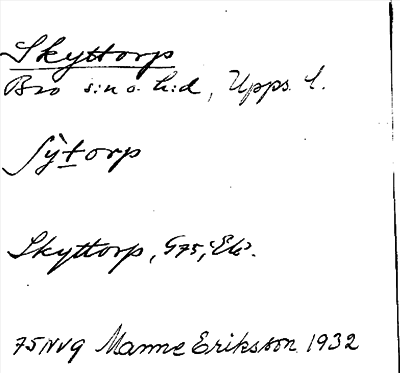 Skyttorp
Bro s:n o. h:d, Upps. l.
ʃỳtorp
Skyttorp, G75, Ek.
75NV9 Manne Eriksson 1932